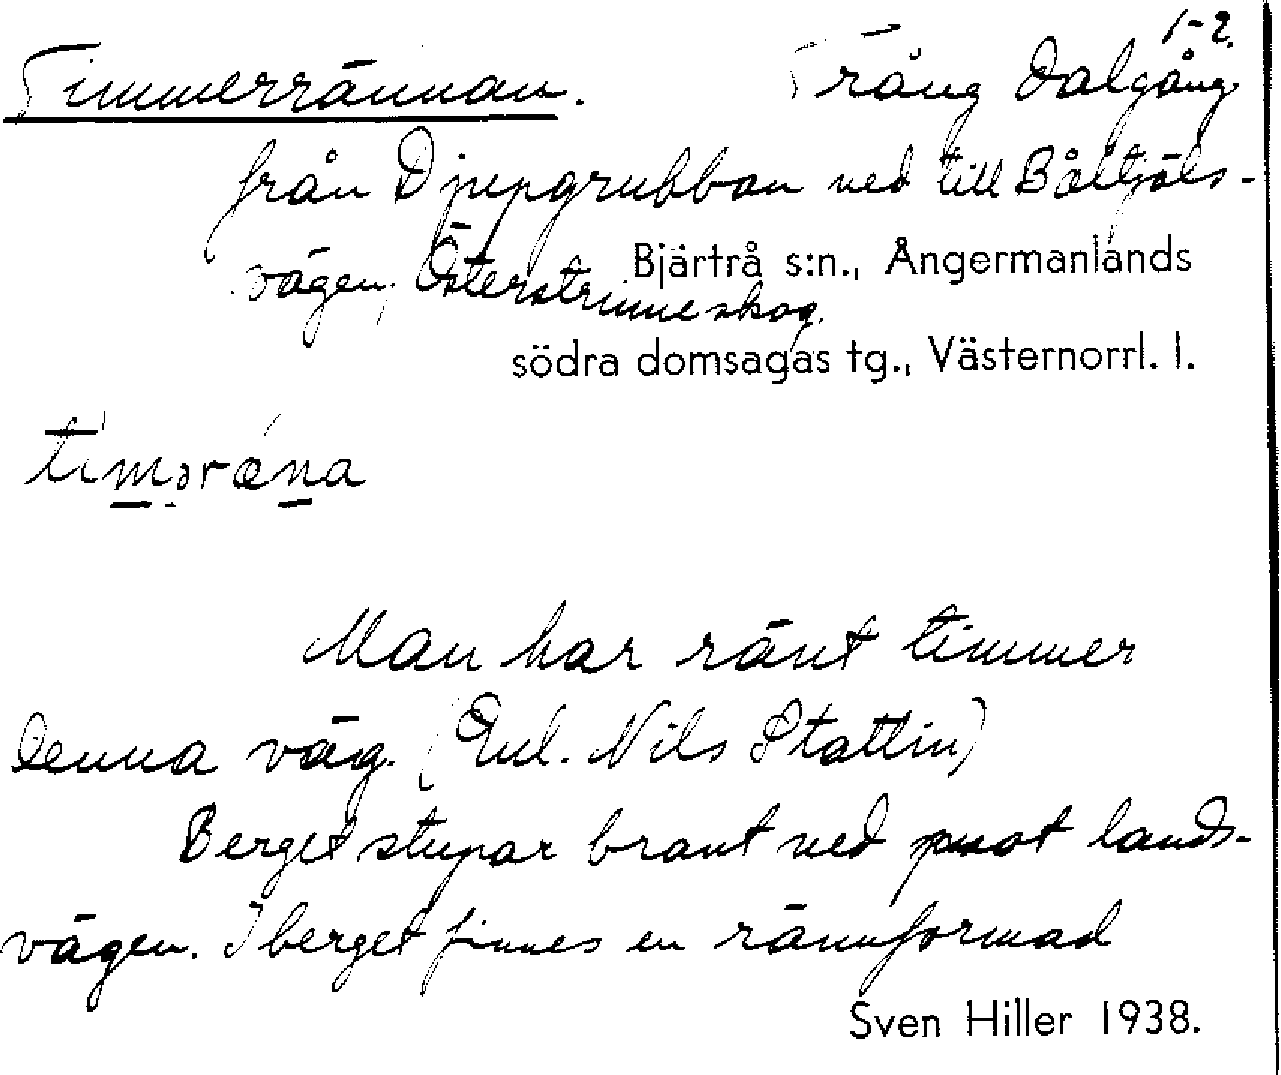 1-2.
Timmerrännan. Trång dalgång
från Djupgrubban ned till Båltjäls-
vägen, Österstrinne skog.
Bjärtrå s:n., Ångermanlands
södra domsagas tg., Västernorrl. l.
timəræna
Man har ränt timmer
denna väg. (Enl. Nils Stattin)
Berget stupar brant ned mot lands-
vägen. I berget finnes en rännformad
Sven Hiller 1938.